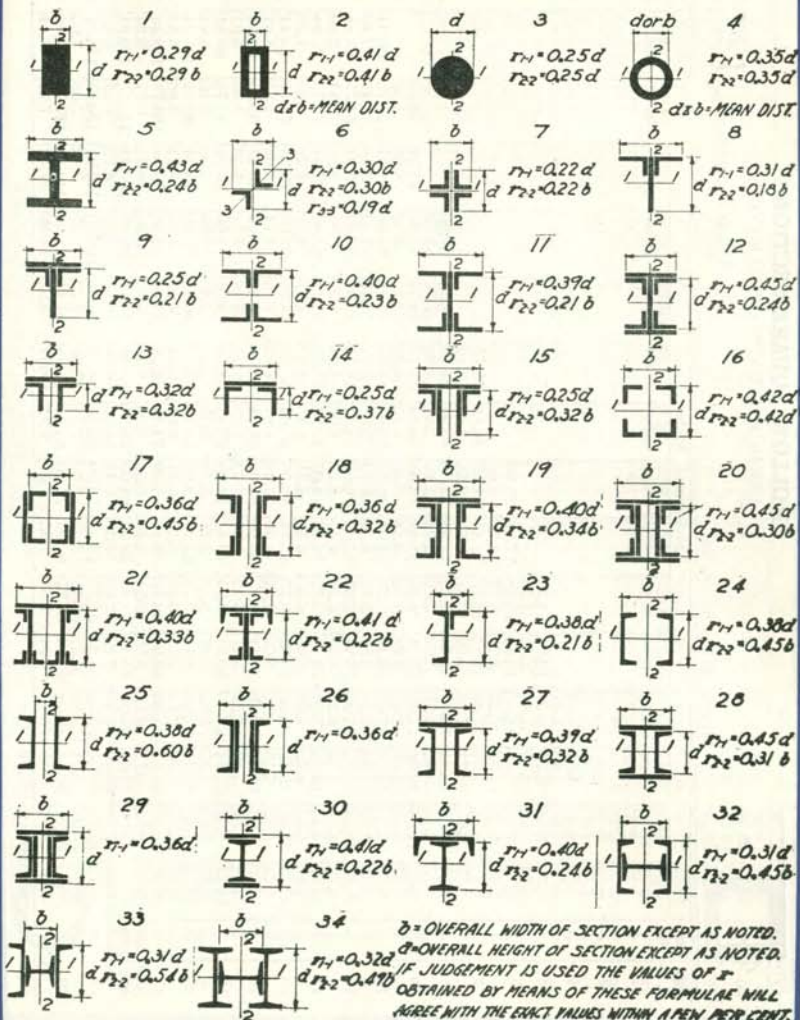 b 1
r1-1=0.29d
r2-2=0.29b
b 2
r1-1=0.41d
r2-2=0.41b
d & b=MEAN DIST.
d 3
r1-1=0.25d
r2-2=0.25d
d or b 4
r1-1=0.35d
r2-2=0.35d
d & b=MEAN DIST.
b 5
r1-1=0.43d
r2-2=0.24b
b 6
r1-1=0.30d
r2-2=0.30b
r3-3=0.19d
b 7
r1-1=0.22d
r2-2=0.22b
b 8
r1-1=0.31d
r2-2=0.18b
b 9
r1-1=0.25d
r2-2=0.21b
b 10
r1-1=0.40d
r2-2=0.23b
b 11
r1-1=0.39d
r2-2=0.21b
b 12
r1-1=0.45d
r2-2=0.24b
b 13
r1-1=0.32d
r2-2=0.32b
b 14
r1-1=0.25d
r2-2=0.37b
b 15
r1-1=0.25d
r2-2=0.32b
b 16
r1-1=0.42d
r2-2=0.42d
b 17
r1-1=0.36d
r2-2=0.45b
b 18
r1-1=0.36d
r2-2=0.32b
b 19
r1-1=0.40d
r2-2=0.34b
b 20
r1-1=0.45d
r2-2=0.30b
b 21
r1-1=0.40d
r2-2=0.33b
b 22
r1-1=0.41d
r2-2=0.22b
b 23
r1-1=0.38d
r2-2=0.21b
b 24
r1-1=0.38d
r2-2=0.45b
b 25
r1-1=0.38d
r2-2=0.60b
b 26
r1-1=0.36d
b 27
r1-1=0.39d
r2-2=0.32b
b 28
r1-1=0.45d
r2-2=0.31b
b 29
r1-1=0.36d
b 30
r1-1=0.41d
r2-2=0.22b
b 31
r1-1=0.40d
r2-2=0.24b
b 32
r1-1=0.31d
r2-2=0.45b
b 33
r1-1=0.31d
r2-2=0.54b
b 34
r1-1=0.32d
r2-2=0.49b
b = OVERALL WIDTH OF SECTION EXCEPT AS NOTED.
d=OVERALL HEIGHT OF SECTION EXCEPT AS NOTED.
IF JUDGEMENT IS USED THE VALUES OF r
OBTAINED BY MEANS OF THESE FORMULAE WILL
AGREE WITH THE EXACT VALUES WITHIN A FEW PER CENT.